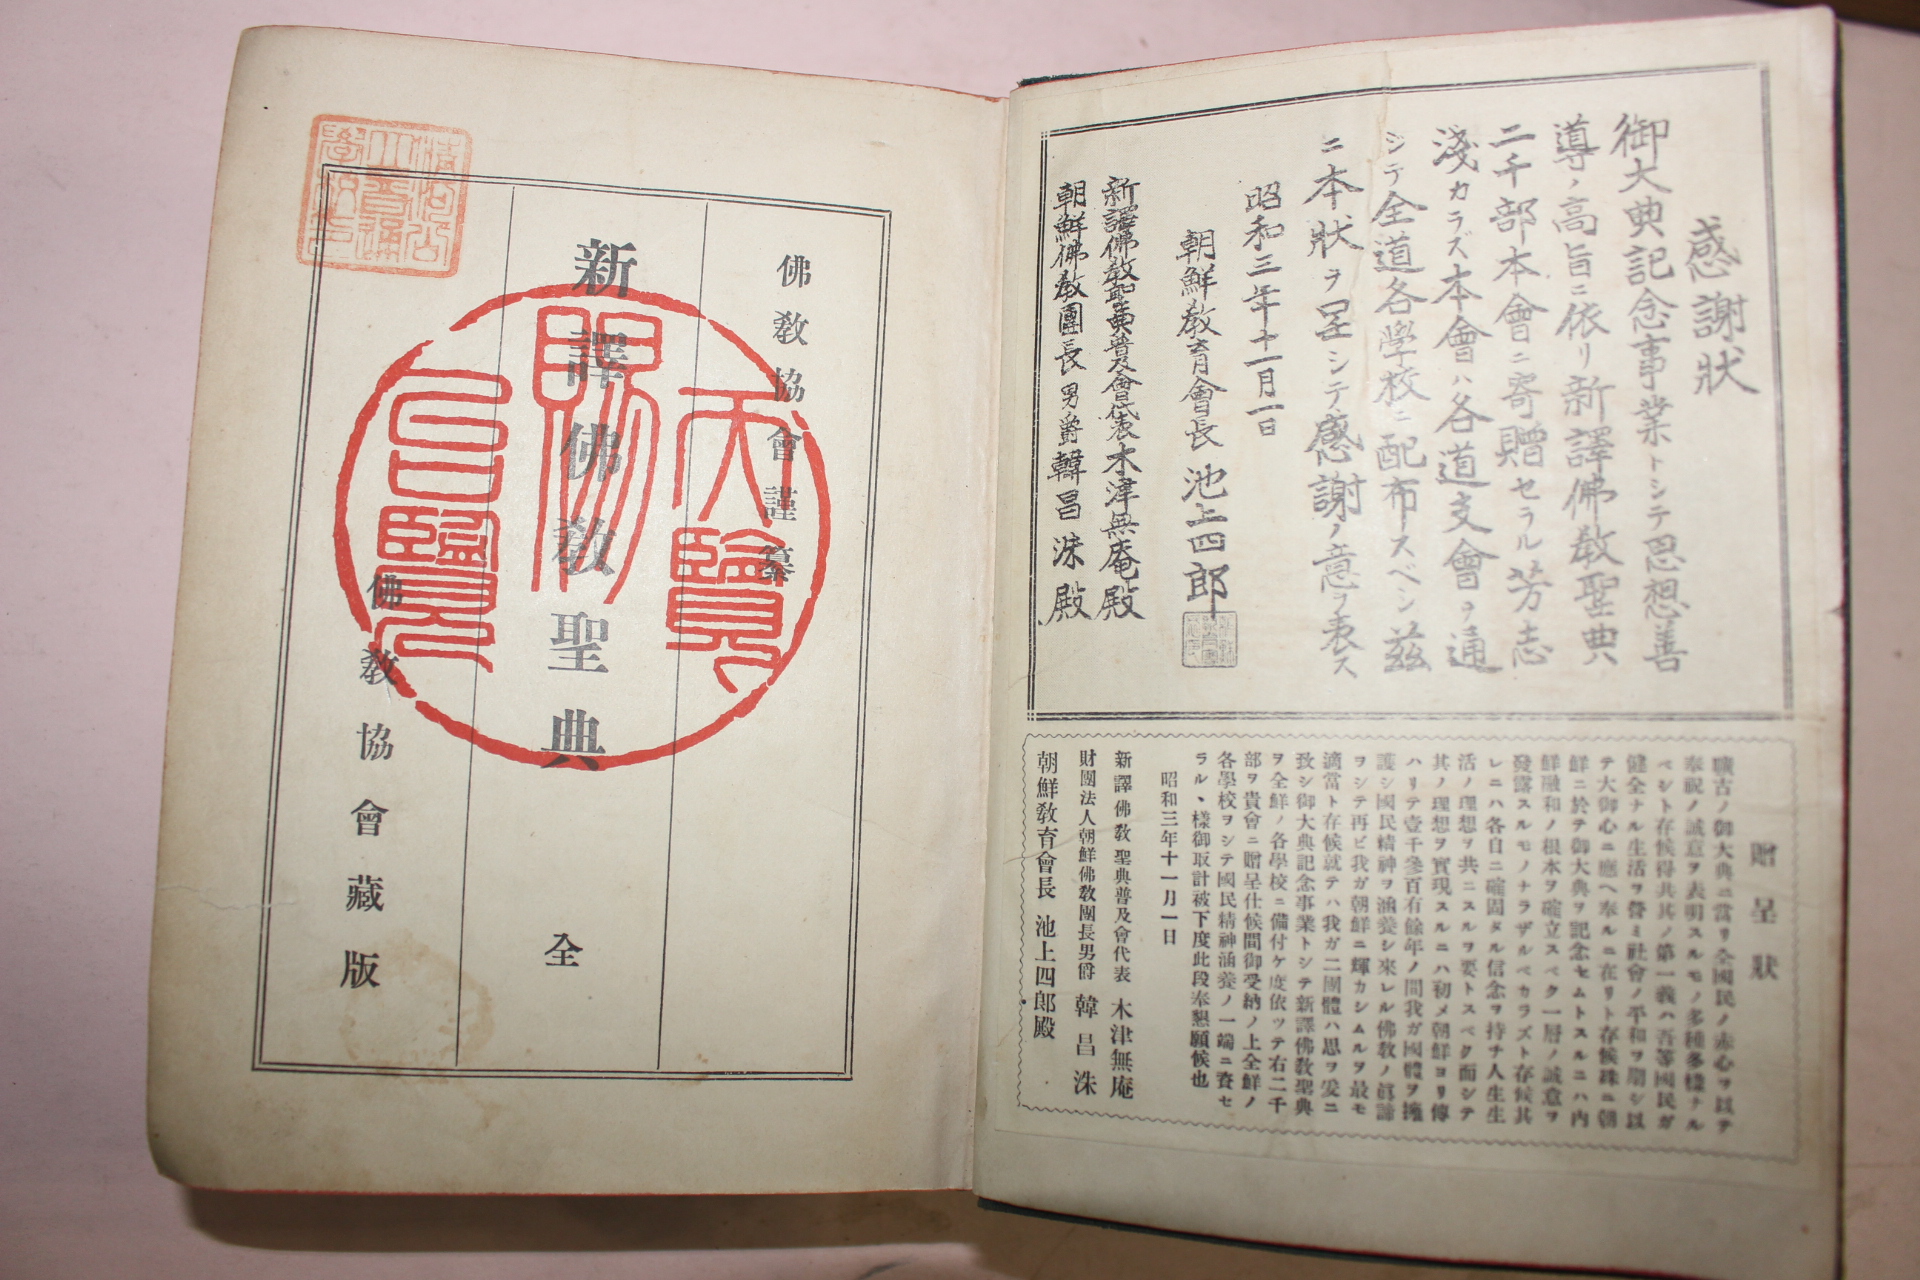 感謝狀
御大典記念事業トシテ思想善
導ノ高旨ニ依リ新譯佛敎聖典
二千部本會ニ寄贈セラル芳志
淺カラズ本會ハ各道支會ヲ通
シテ全道各學校ニ配布スベシ茲
ニ本狀ヲ呈シテ感謝ノ意ヲ表ス
昭和三年十一月一日
朝鮮敎育會長 池上四郎
新譯佛敎聖典普及會代表 木津無庵殿
朝鮮佛敎團長男爵 韓昌洙殿
贈呈狀
曠古ノ御大典ニ當リ全國民ノ赤心ヲ以テ
奉祝ノ誠意ヲ表明スルモノ多種多樣ナル
ベシト存候得共其ノ第一義ハ吾等國民ガ
健全ナル生活ヲ營ミ社會ノ平和ヲ期シ以
テ大御心ニ應ヘ奉ルニ在リト存候殊ニ朝
鮮ニ於テ御大典ヲ記念セムトスルニハ內
鮮融和ノ根本ヲ確立スベク一層ノ誠意ヲ
發露スルモノナラザルベカラズト存候其
レニハ各自ニ確固タル信念ヲ持チ人生生
活ノ理想ヲ共ニスルヲ要トスベク而シテ
其ノ理想ヲ實現スルニハ初メ朝鮮ヨリ傳
ハリテ壹千參百有餘年ノ間我ガ國體ヲ擁
護シ國民精神ヲ涵養シ來レル佛敎ノ眞諦
ヲシテ再ビ我ガ朝鮮ニ輝カシムルヲ最モ
適當ト存候就テハ我ガ二團體ハ思ヲ爰ニ
致シ御大典記念事業トシテ新譯佛敎聖典
ヲ全鮮ノ各學校ニ備付ケ度依ッテ右二千
部ヲ貴會ニ贈呈仕候間御受納ノ上全鮮ノ
各學校ヲシテ國民精神涵養ノ一端ニ資セ
ラル、樣御取計被下度此段奉懇願候也
昭和三年十一月一日
新譯佛敎聖典普及會代表 木津無庵
財團法人朝鮮佛敎團長男爵 韓昌洙
朝鮮敎育會長 池上四郎殿
佛敎協會謹纂
新譯佛敎聖典 全
佛敎協會藏版
天覽
賜
台覽